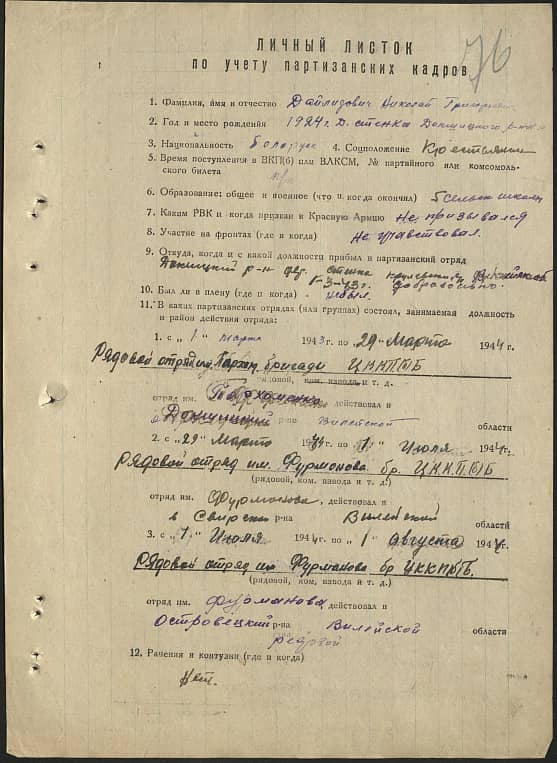 76
ЛИЧНЫЙ ЛИСТОК
по учету партизанских кадров
1. Фамилия, имя и отчество Дайлидович Николай
2. Год и место рождения 1924г. д. Стенка Докшицкого р-на
3. Национальность Белорус 4. Соцположение Крестьянин
5. Время поступления в ВКП(б) или ВЛКСМ, № партийного или комсомоль-
ского билета
6. Образование: общее и военное (что и когда окончил)
7. Каким РВК и когда призван в Красную Армию Не призывался
8. Участие на фронтах (где и когда) Не участвовал.
9. Откуда, когда и с какой должности прибыл в партизанский отряд
Докшицкий р-н дер. Стенка
1-3-43г. добровольно.
10. Был ли в плену (где и когда) не был.
11. В каких партизанских отрядах (или группах) состоял, занимаемая должность
и район действия отряда:
1. с „ 1 " марта 1943 г. по „ 29 " Марта 1944 г.
Рядовой отряд им. Пархом. бригади ЦККПБ
(рядовой, ком. взвода и т. д.)
отряд им. Пархоменко действовал в
Докшицкий р-на Вилейской области
2. с „ 29 " Марта 1944 г. по „ 1 " Июля 1944 г.
Рядовой отряд им. Фурмонова бр. ЦККПБ
(рядовой, ком. взвода и т. д.)
отряд им. Фурмонова, действовал
в Свирском р-на Вилейский области
3. с „ 1 " Июля 1944 г. по „ 1 " Августа 1944 г.
Рядовой отряд им Фурмонова бр ЦККПБ.
(рядовой, ком. взвода и т. д.)
отряд им. Фурманова действовал в
Островецкий р-на Вилейской области
рядовой
12. Ранения и контузии (где и когда)
Нет.